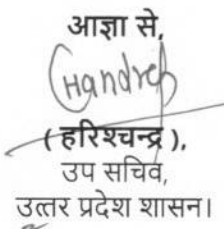 आज्ञा से,
Chandres
( हरिश्चन्द्र ),
उप सचिव,
उत्तर प्रदेश शासन।